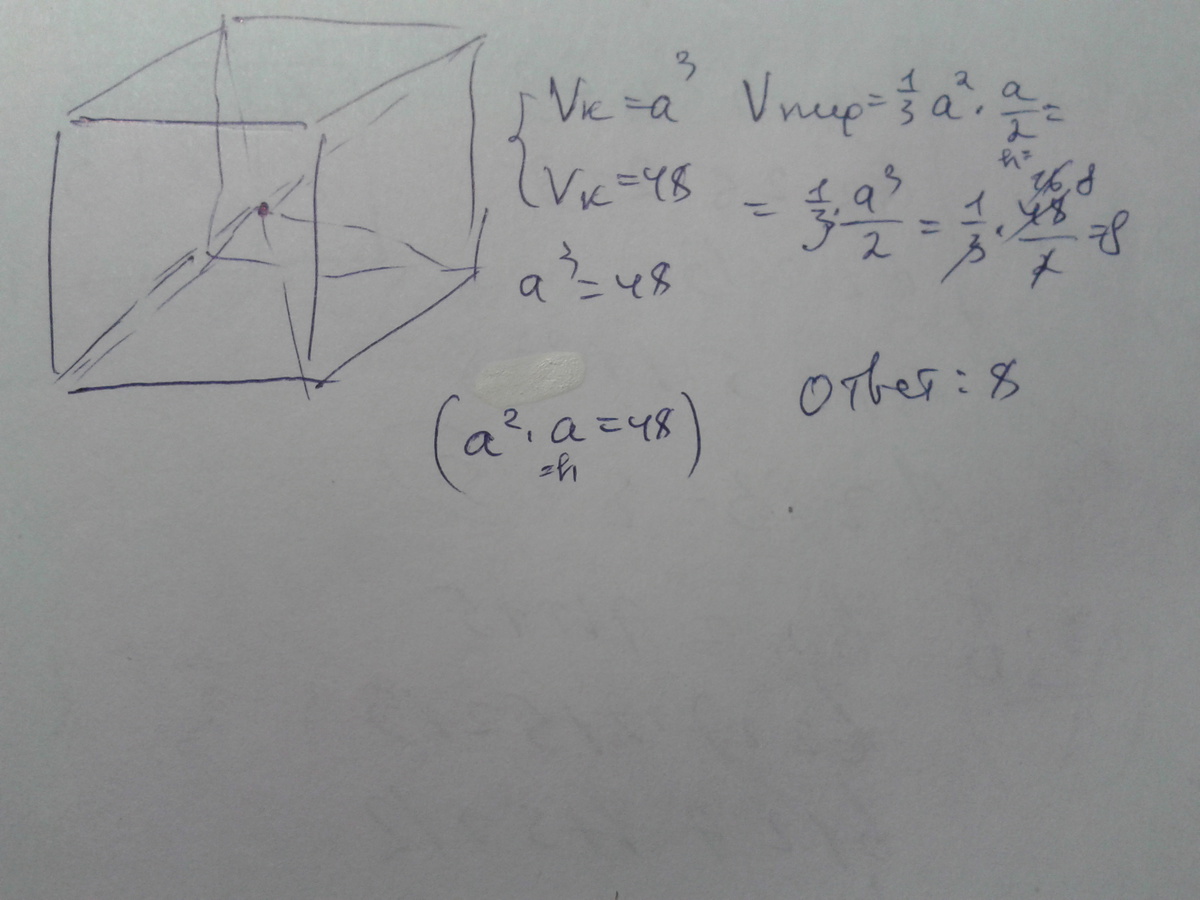 Vк = a³
Vк = 48
a³ = 48
(a² · a = 48)
=h
Vпир = 1/3 a² · a/2 =
h=
= 1/3 · a³/2 = 1/3 · 48/2 = 8
16 8
Ответ: 8